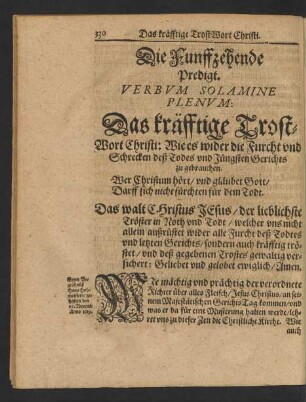 330 Das kräfftige Trost-Wort Christi.
Die Funffzehende
Predigt.
VERBVM SOLAMINE
PLENVM:
Das kräfftige Trost-
Wort Christi: Wie es wider die Furcht vnd
Schrecken deß Todes vnd Jüngsten Gerichts
zu gebrauchen.
Wer Christum hört/ vnd gläubet Gott/
Darff sich nicht fürchten für dem Todt.
Das walt CHristus JEsus/ der lieblichste
Tröster in Noth vnd Todt/ welcher vns nicht
allein außrüstet wider alle Furcht deß Todtes
vnd letzten Gerichts/ sondern auch kräfftig trö-
stet/ vnd deß gegebenen Trostes gewaltig ver-
sichert: Gelobet vnd gelobet ewiglich/ Amen.
WJe mächtig vnd prächtig der verordnete
Richter über alles Fleisch/ Jesus Christus/ an sei-
nem Majestätischen Gerichts Tag kommen/ vnd
was er da für eine Musterung halten werde/ leh-
ret vns zu dieser Zeit die Christliche Kirche. Wie
auch